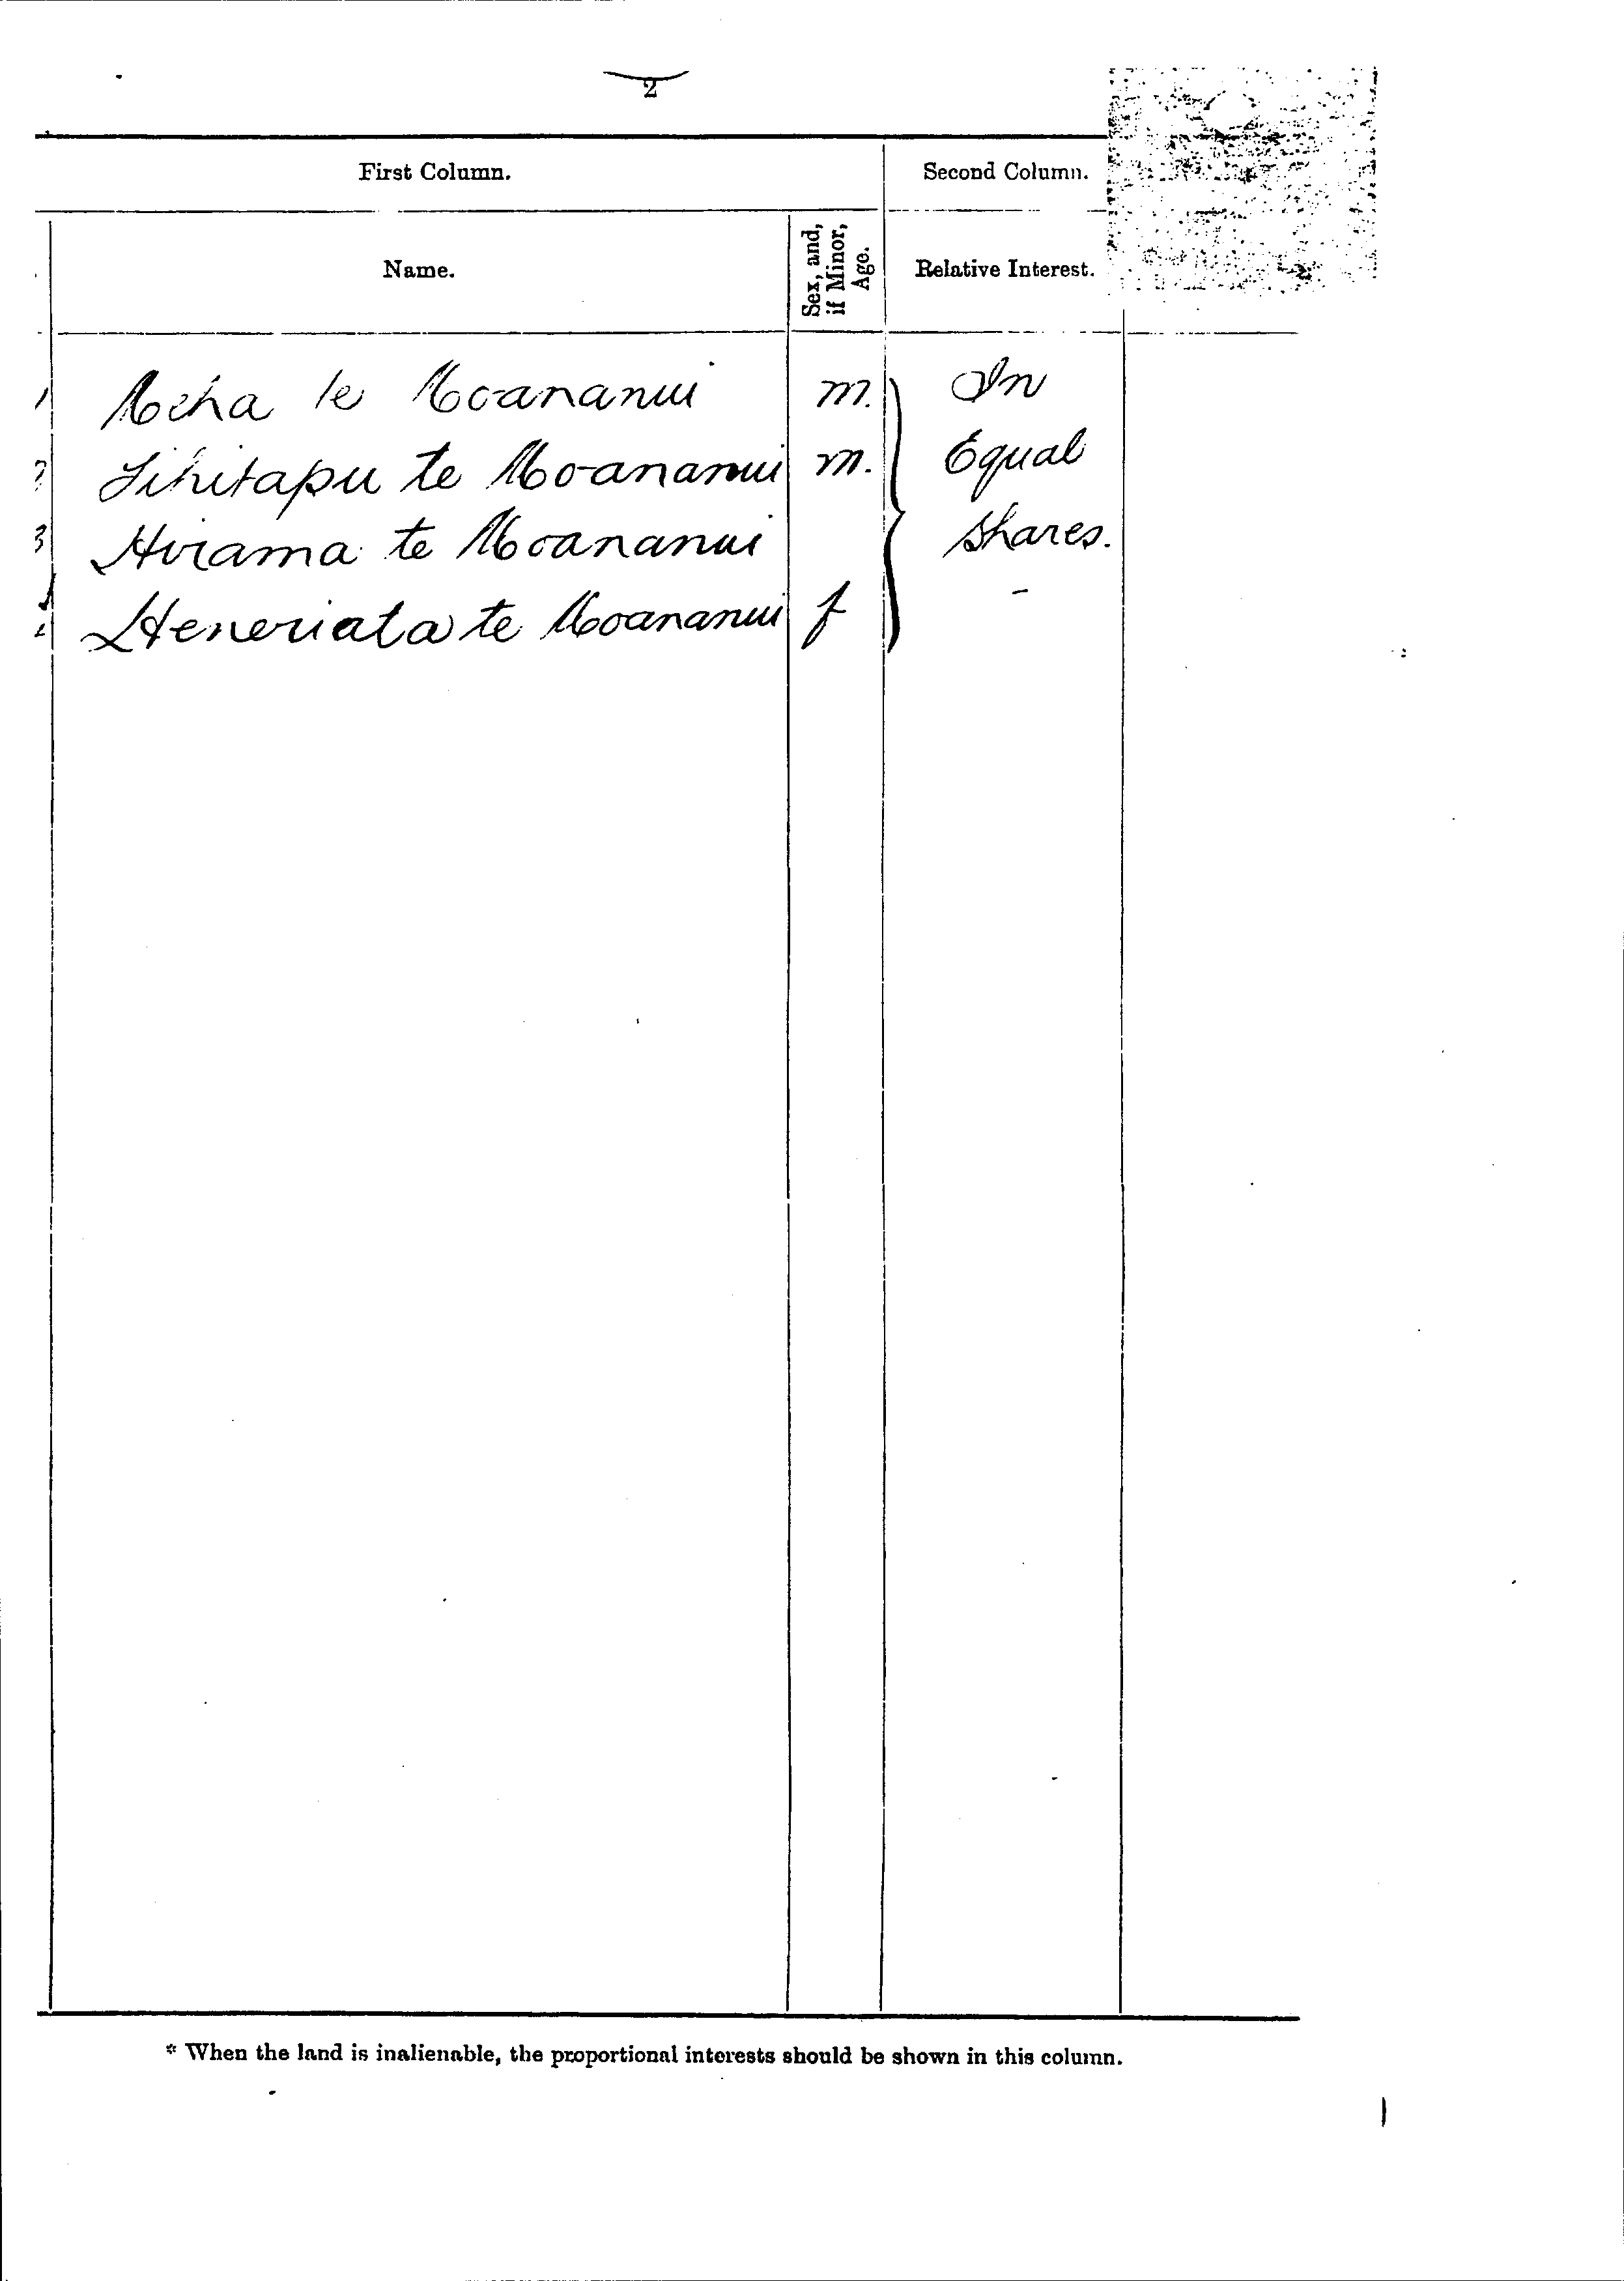 2
First Column. Second Column.
Name. Sex, and, if Minor, Age. Relative Interest.
1 Meha te Moananui m. In
2 Tihitapu te Moananui m. Equal
3 Hirama te Moananui shares.
Heneriata te Moananui f
* When the land is inalienable, the proportional interests should be shown in this column.